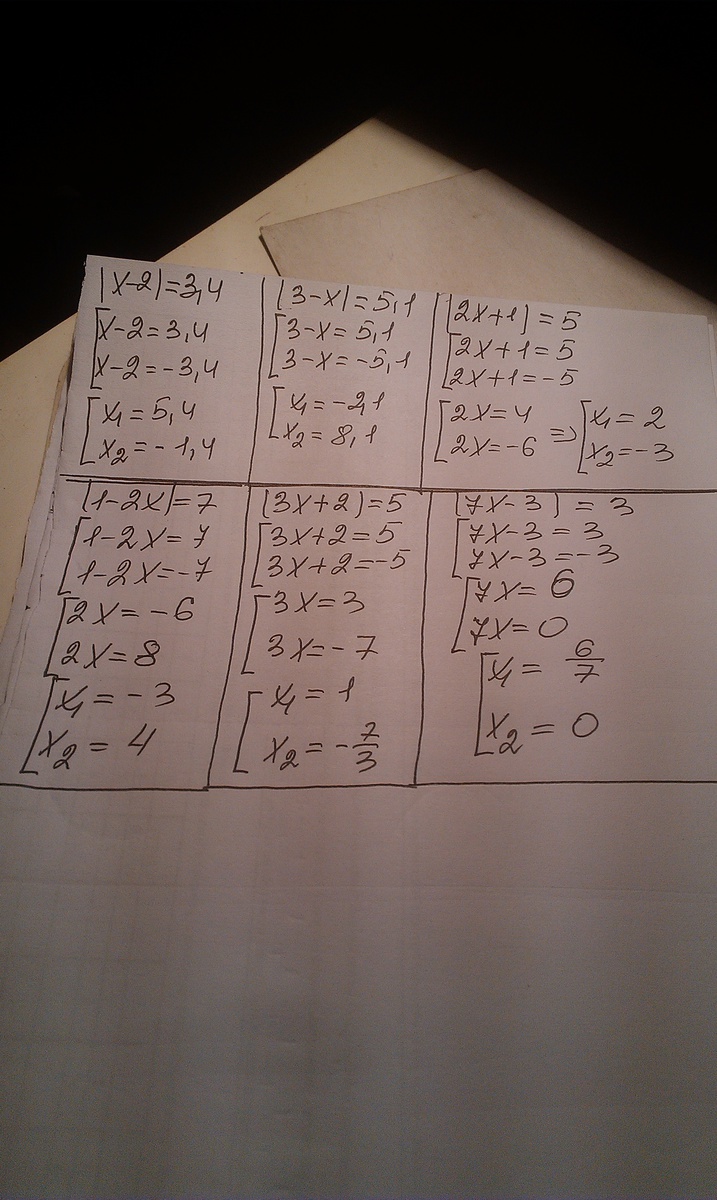 |x-2|=3,4
[x-2=3,4
x-2=-3,4
[x₁=5,4
x₂=-1,4
|3-x|=5,1
[3-x=5,1
3-x=-5,1
[x₁=-2,1
x₂=8,1
|2x+1|=5
[2x+1=5
2x+1=-5
[2x=4 ⇒ [x₁=2
2x=-6 x₂=-3
|1-2x|=7
[1-2x=7
1-2x=-7
[2x=-6
2x=8
[x₁=-3
x₂=4
|3x+2|=5
[3x+2=5
3x+2=-5
[3x=3
3x=-7
[x₁=1
x₂=-7/3
|7x-3|=3
[7x-3=3
7x-3=-3
[7x=6
7x=0
[x₁=6/7
x₂=0